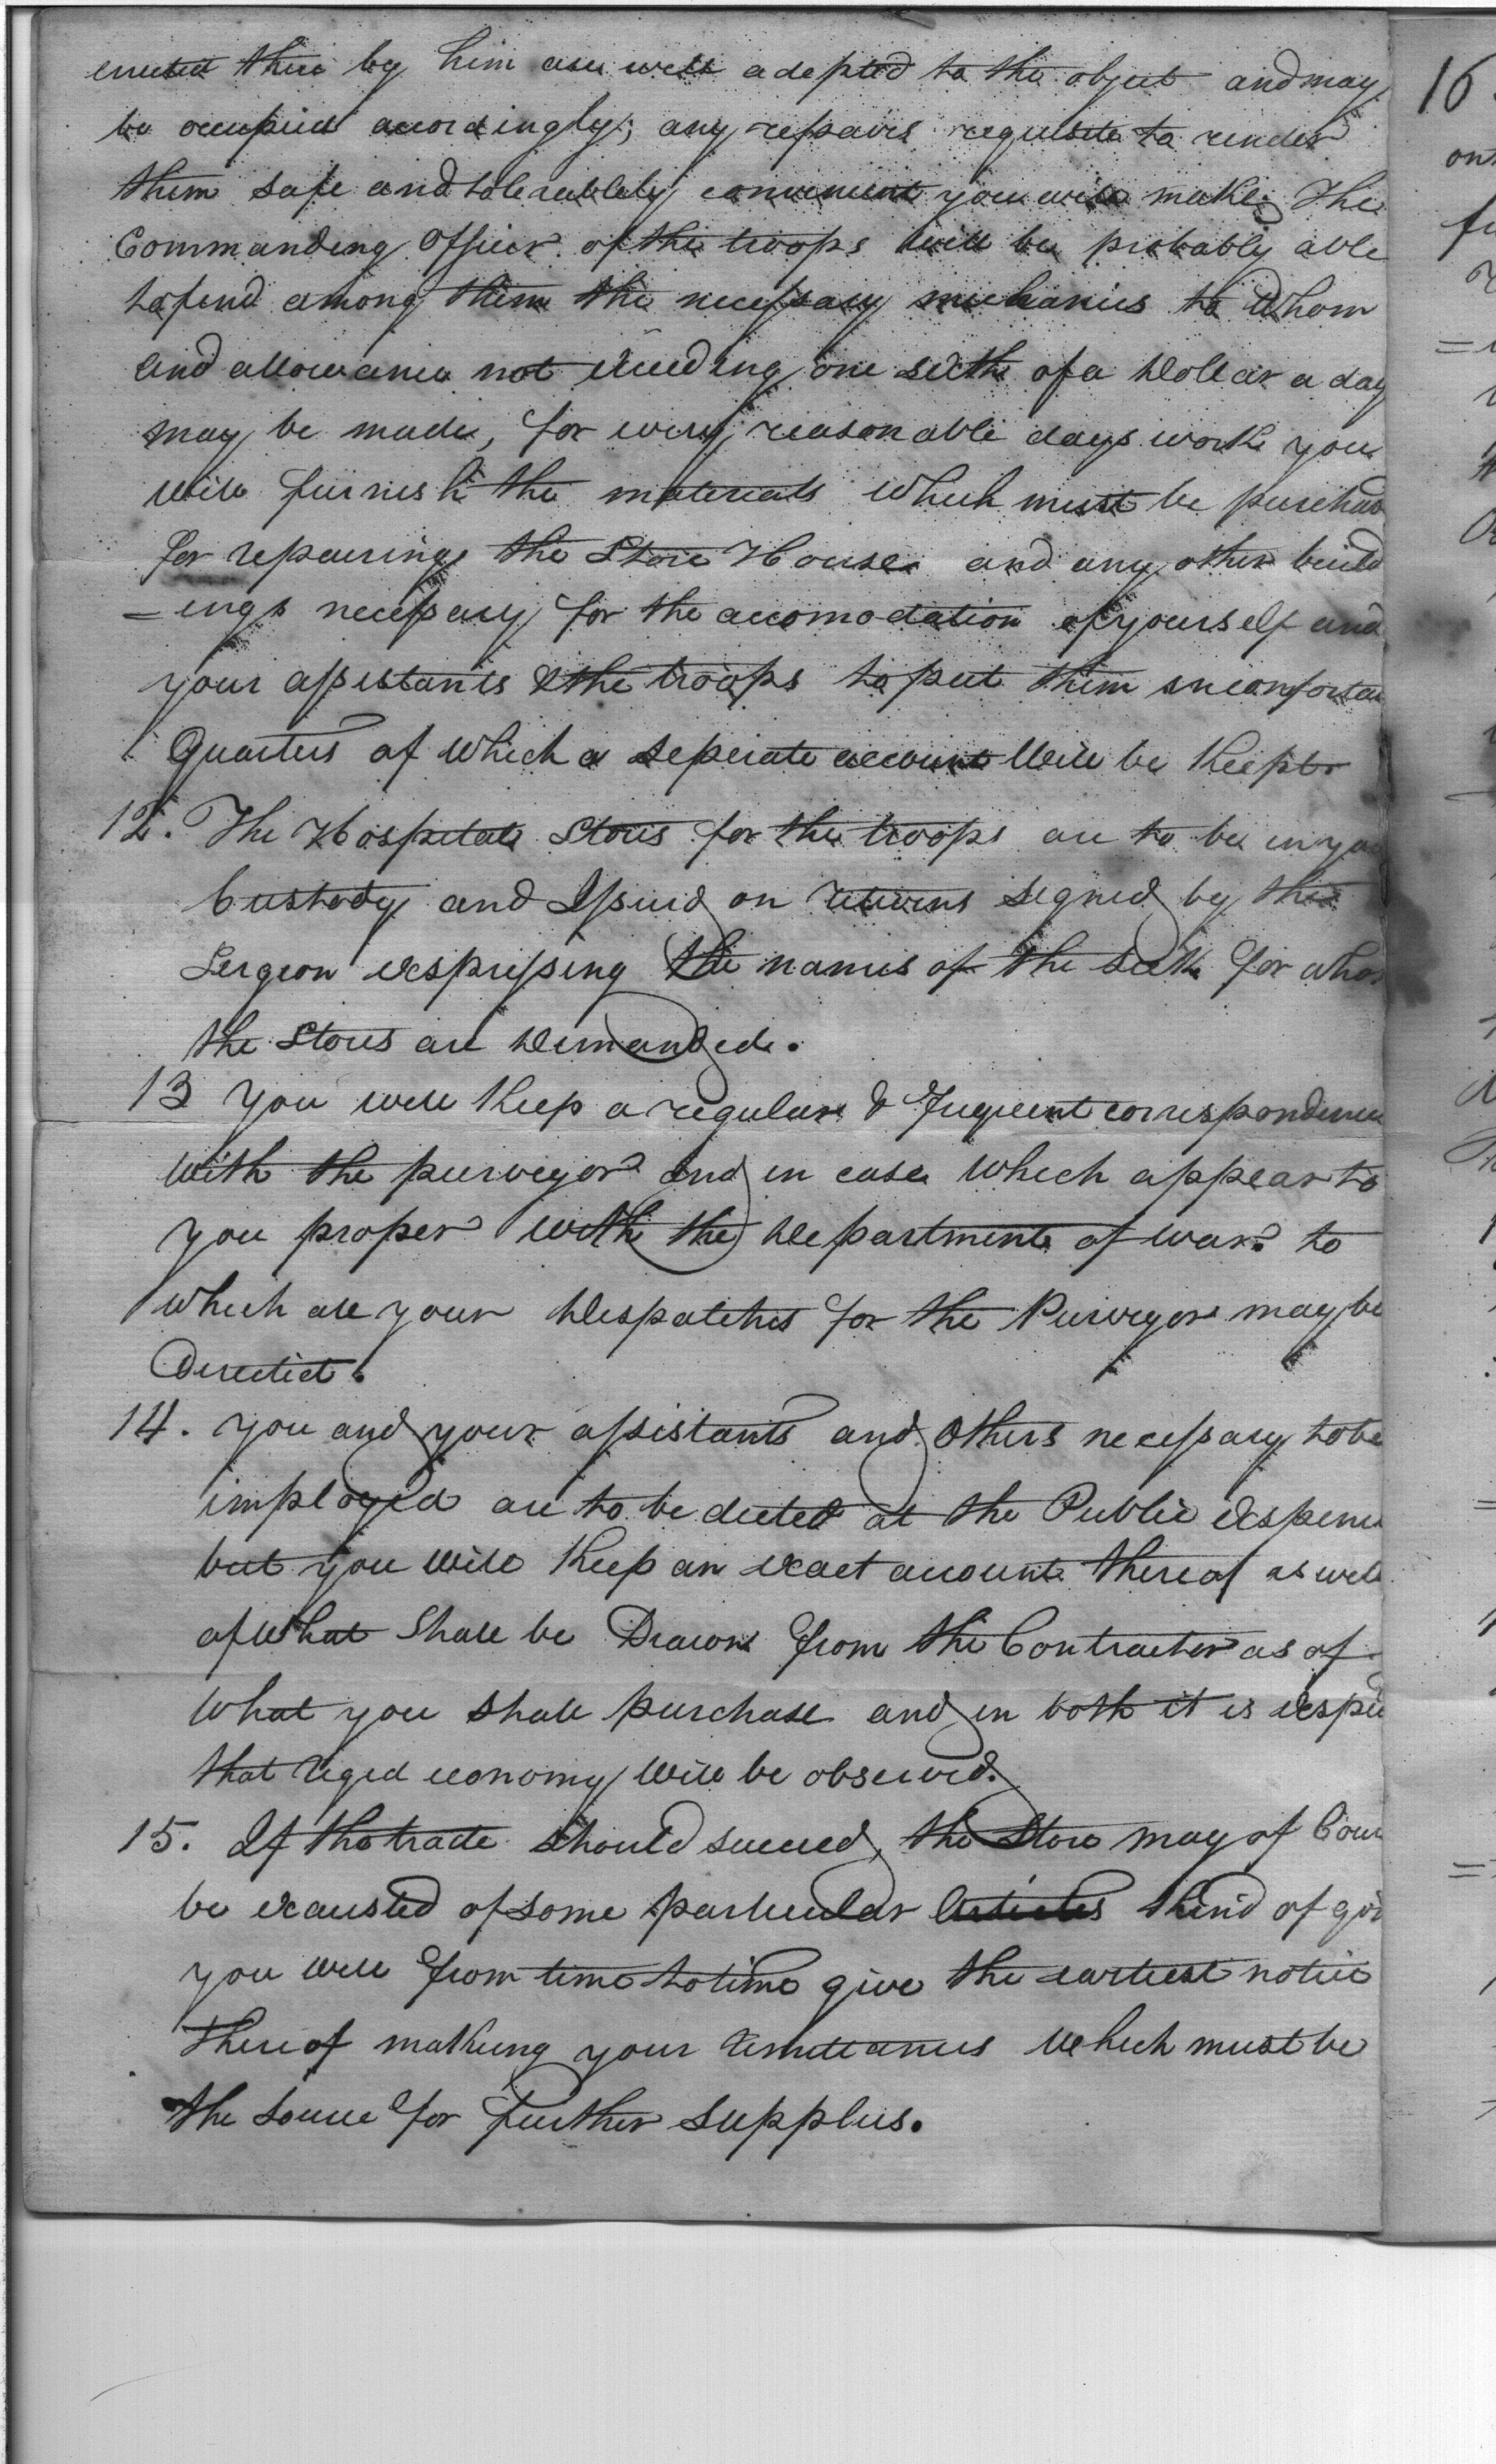 erected there by him are well adepted to the object and may
be occupied accordingly; any repairs requisite to render
them safe and tolerablely convenient you will make. The
Commanding Officer of the troops will be probably able
to find among them the necessary mechanics to Whom
and allowance not exceeding one sixth of a Dollar a day
may be made, for every reasonable days work you
will furnish the materials which must be purchas
for repairing the Store House and any other build
=ings necessary for the accomodation of yourself and
your assistants & the troops to put them in comfortea
Quarters of which a seperate account Will be Keept
12. The Hospital Stores for the troops are to be in you
Custody and Issued on returns signed by the
Sergeon expressing the names of the sick for whom
the Stores are Demanded.
13 You will Keep a regular & Frequent correspondence
with the purveyor and in case which appear to
you proper with the Department of war. to
which all your Despatches for the Purveyor may be
Directed.
14. You and your assistants and Others necessary to be
imployed are to be dieted at the Public Expence
but you will Keep an exact account thereof as well
of what Shall be Drawn from the Contractor as of
what you shall purchase and in both it is expe
that riged economy will be observed.
15. If the trade Should succeed, the Store may of Cour
be exausted of some particular Articles Kind of goo
you will from time to time give the earliest notice
thereof making your remittances which must be
the source for further supplies.
16
on